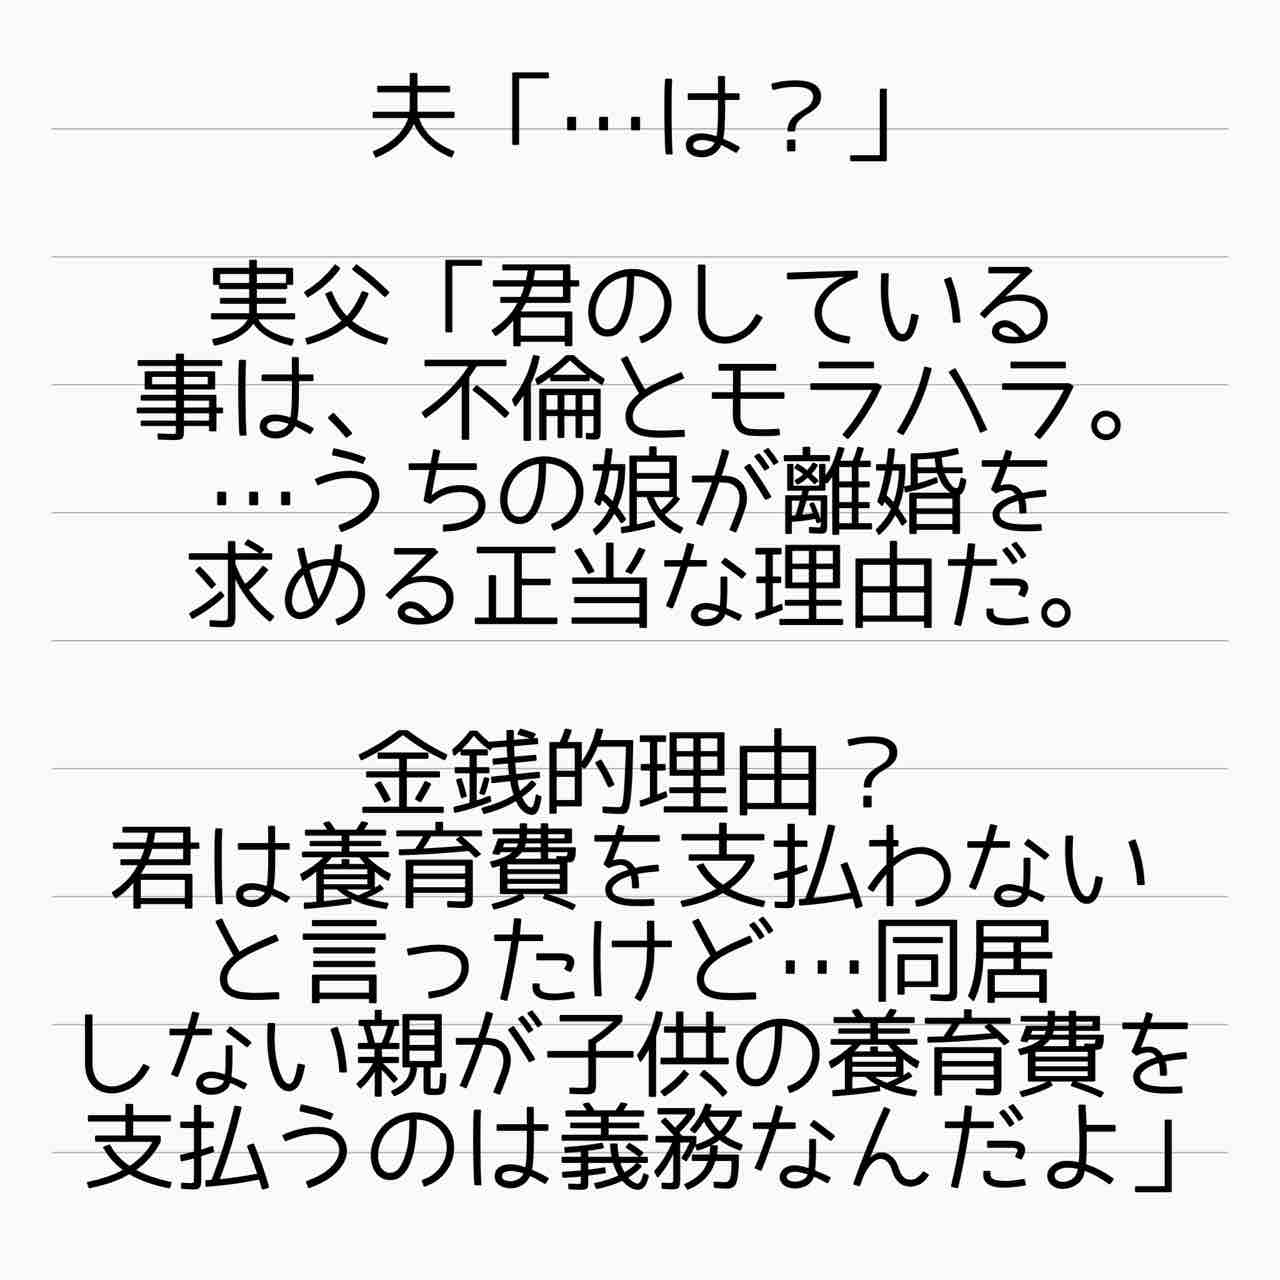 夫「…は？」
実父「君のしている
事は、不倫とモラハラ。
…うちの娘が離婚を
求める正当な理由だ。
金銭的理由？
君は養育費を支払わない
と言ったけど…同居
しない親が子供の養育費を
支払うのは義務なんだよ」